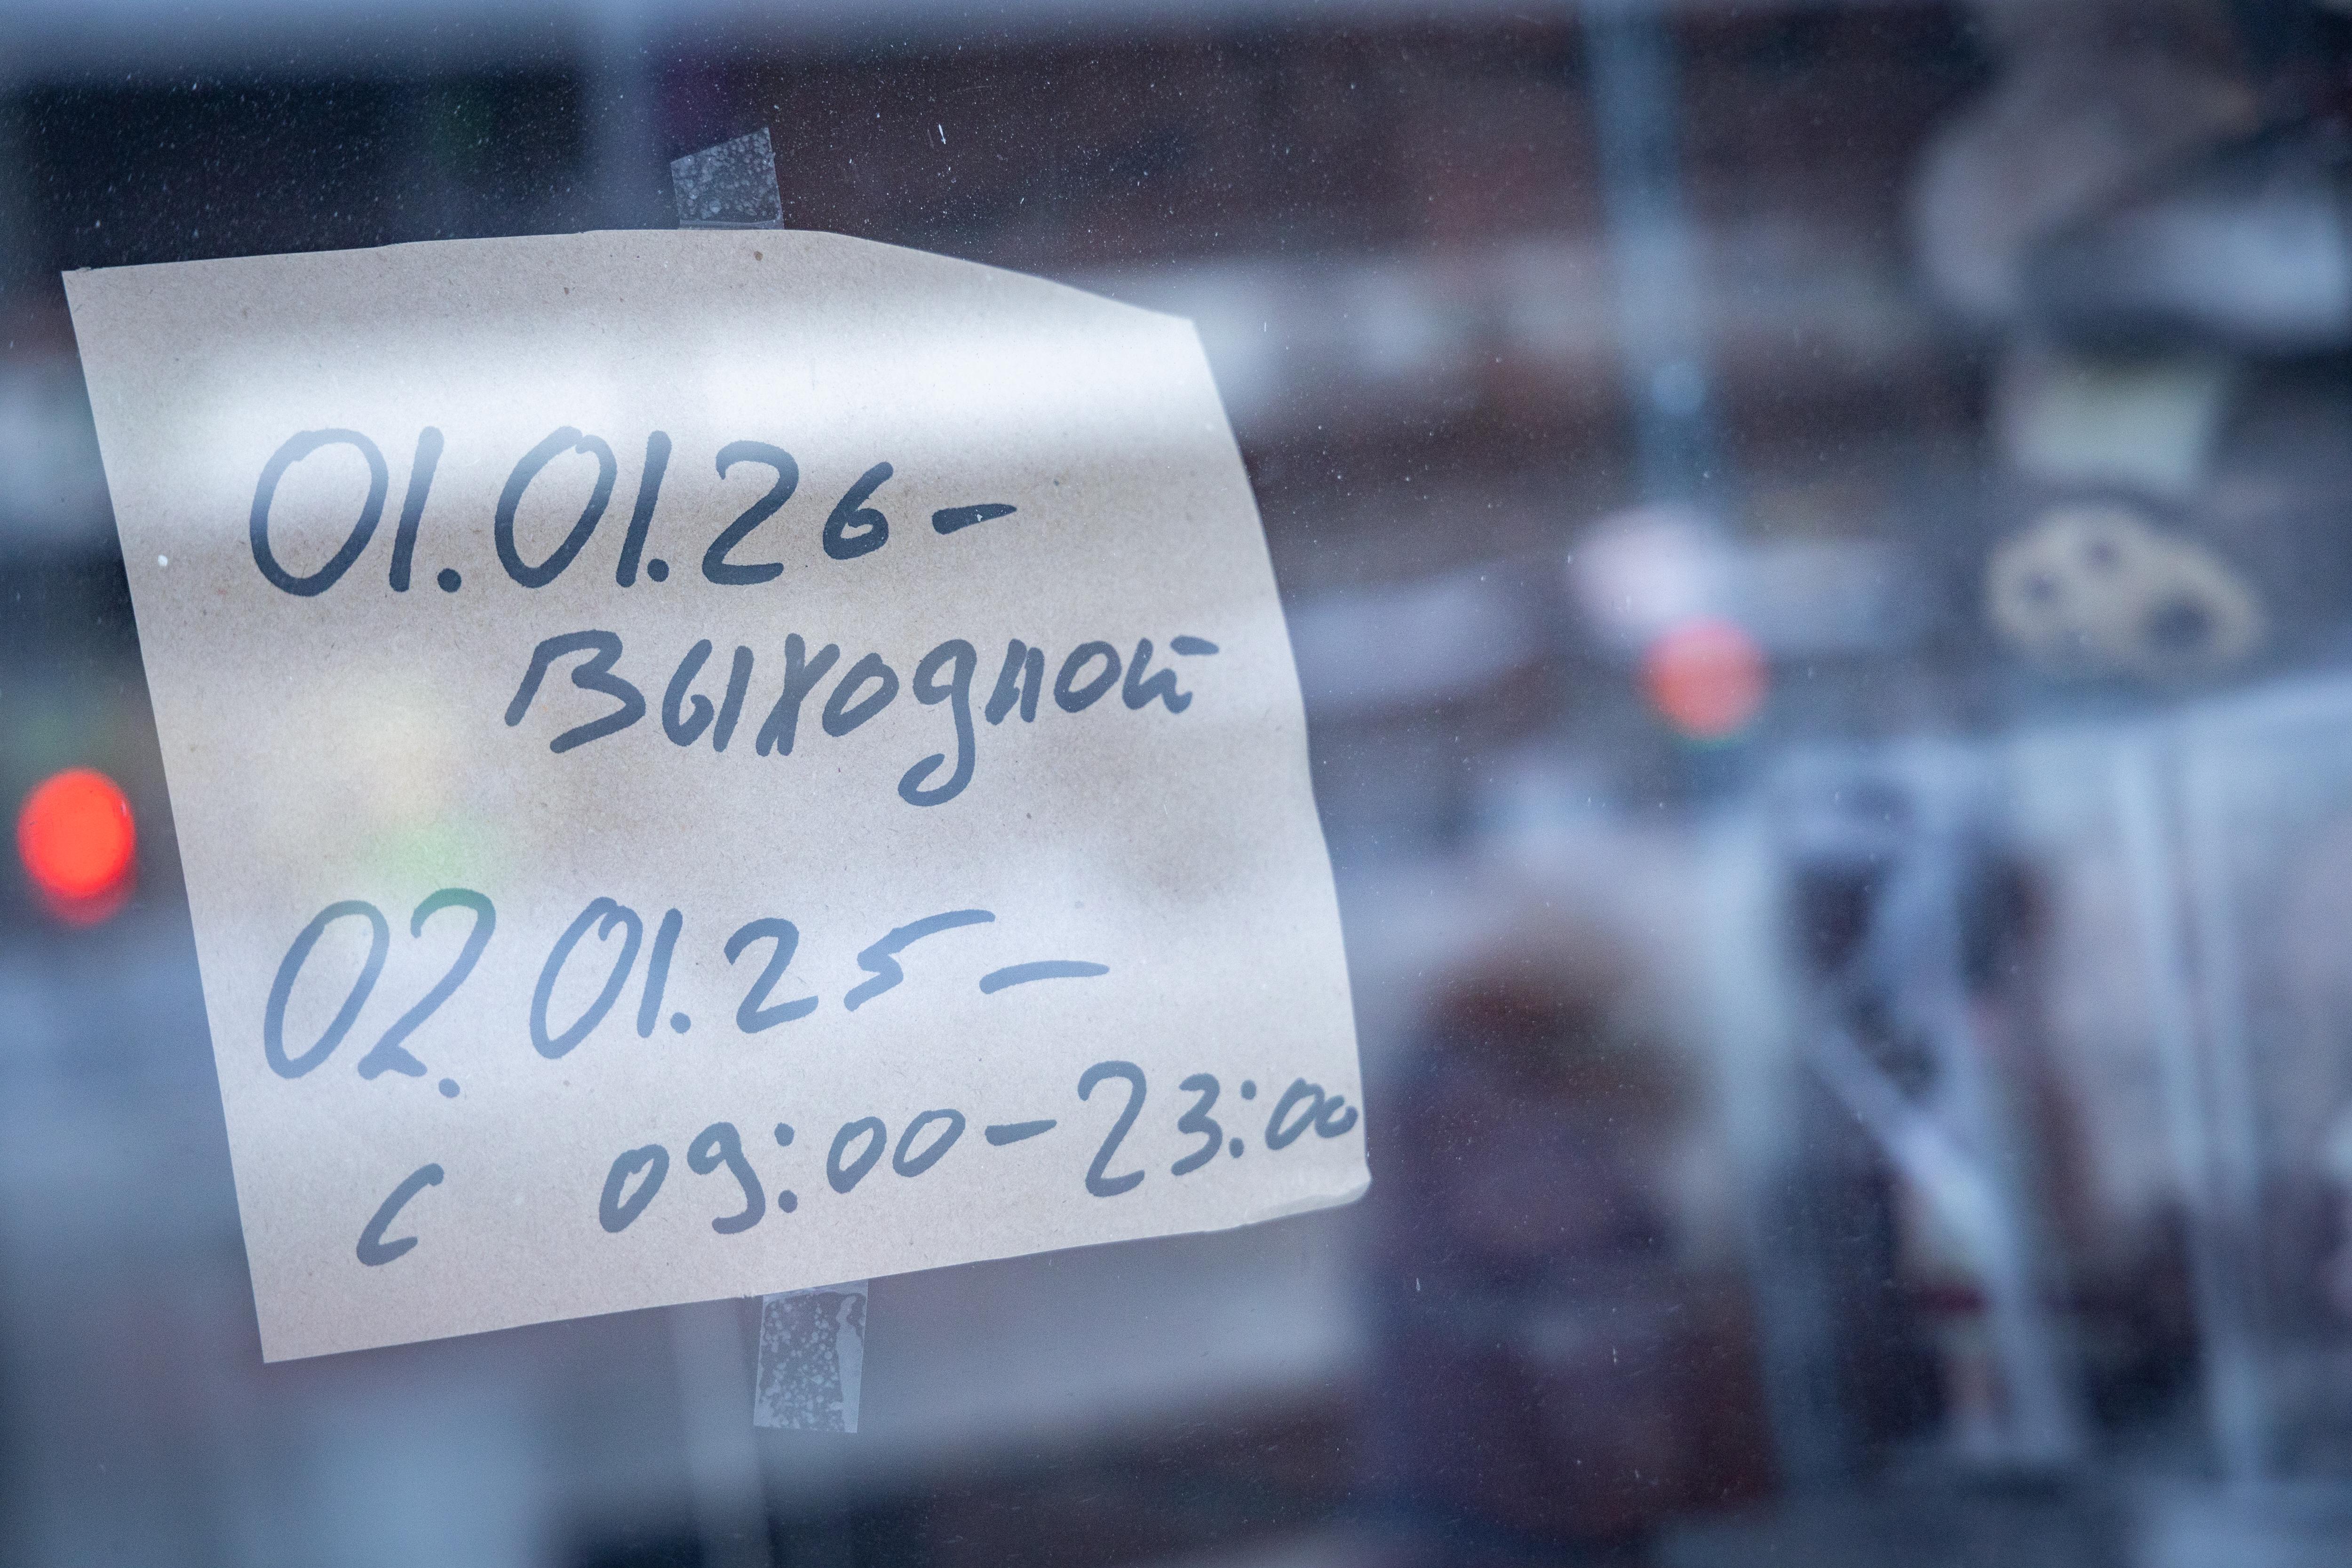 01.01.26 -
Выходной
02.01.25 -
с 09:00 - 23:00